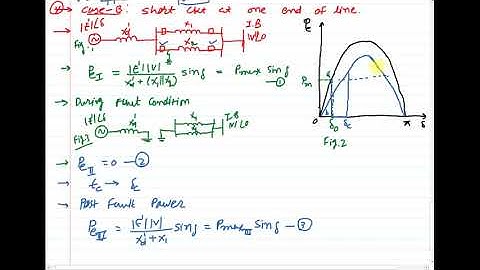 Case-B: Short Ckt at one end of line.
|E'|∠δ
x'd
x1
x2
I.B
|V|∠0
Fig.1
PeI = |E'||V| / x'd + (x1||x2) sinδ = Pmax sinδ —①
→ During Fault Condition
|E'|∠δ
x'd
x1
x2
I.B
|V|∠0
Fig.3
→ PeII = 0 —②
→ tc → δc
→ Post Fault Power
PeIII = |E'||V| / x'd + x1 sinδ = PmaxIII Sinδ —③
Pe
Pm
0
δ0
δc
π
δ
Fig.2